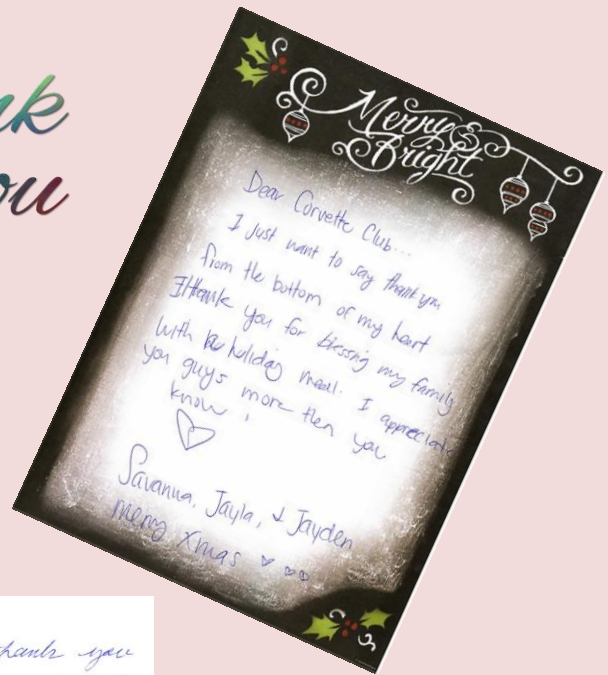 nk
ou
Merry &
Bright
Dear Corvette Club...
I just want to say thank you
from the bottom of my heart
I thank you for blessing my family
with holiday meal. I appreciate
you guys more then you
know!
Savanna, Jayla, & Jayden
Merry Xmas
thank you